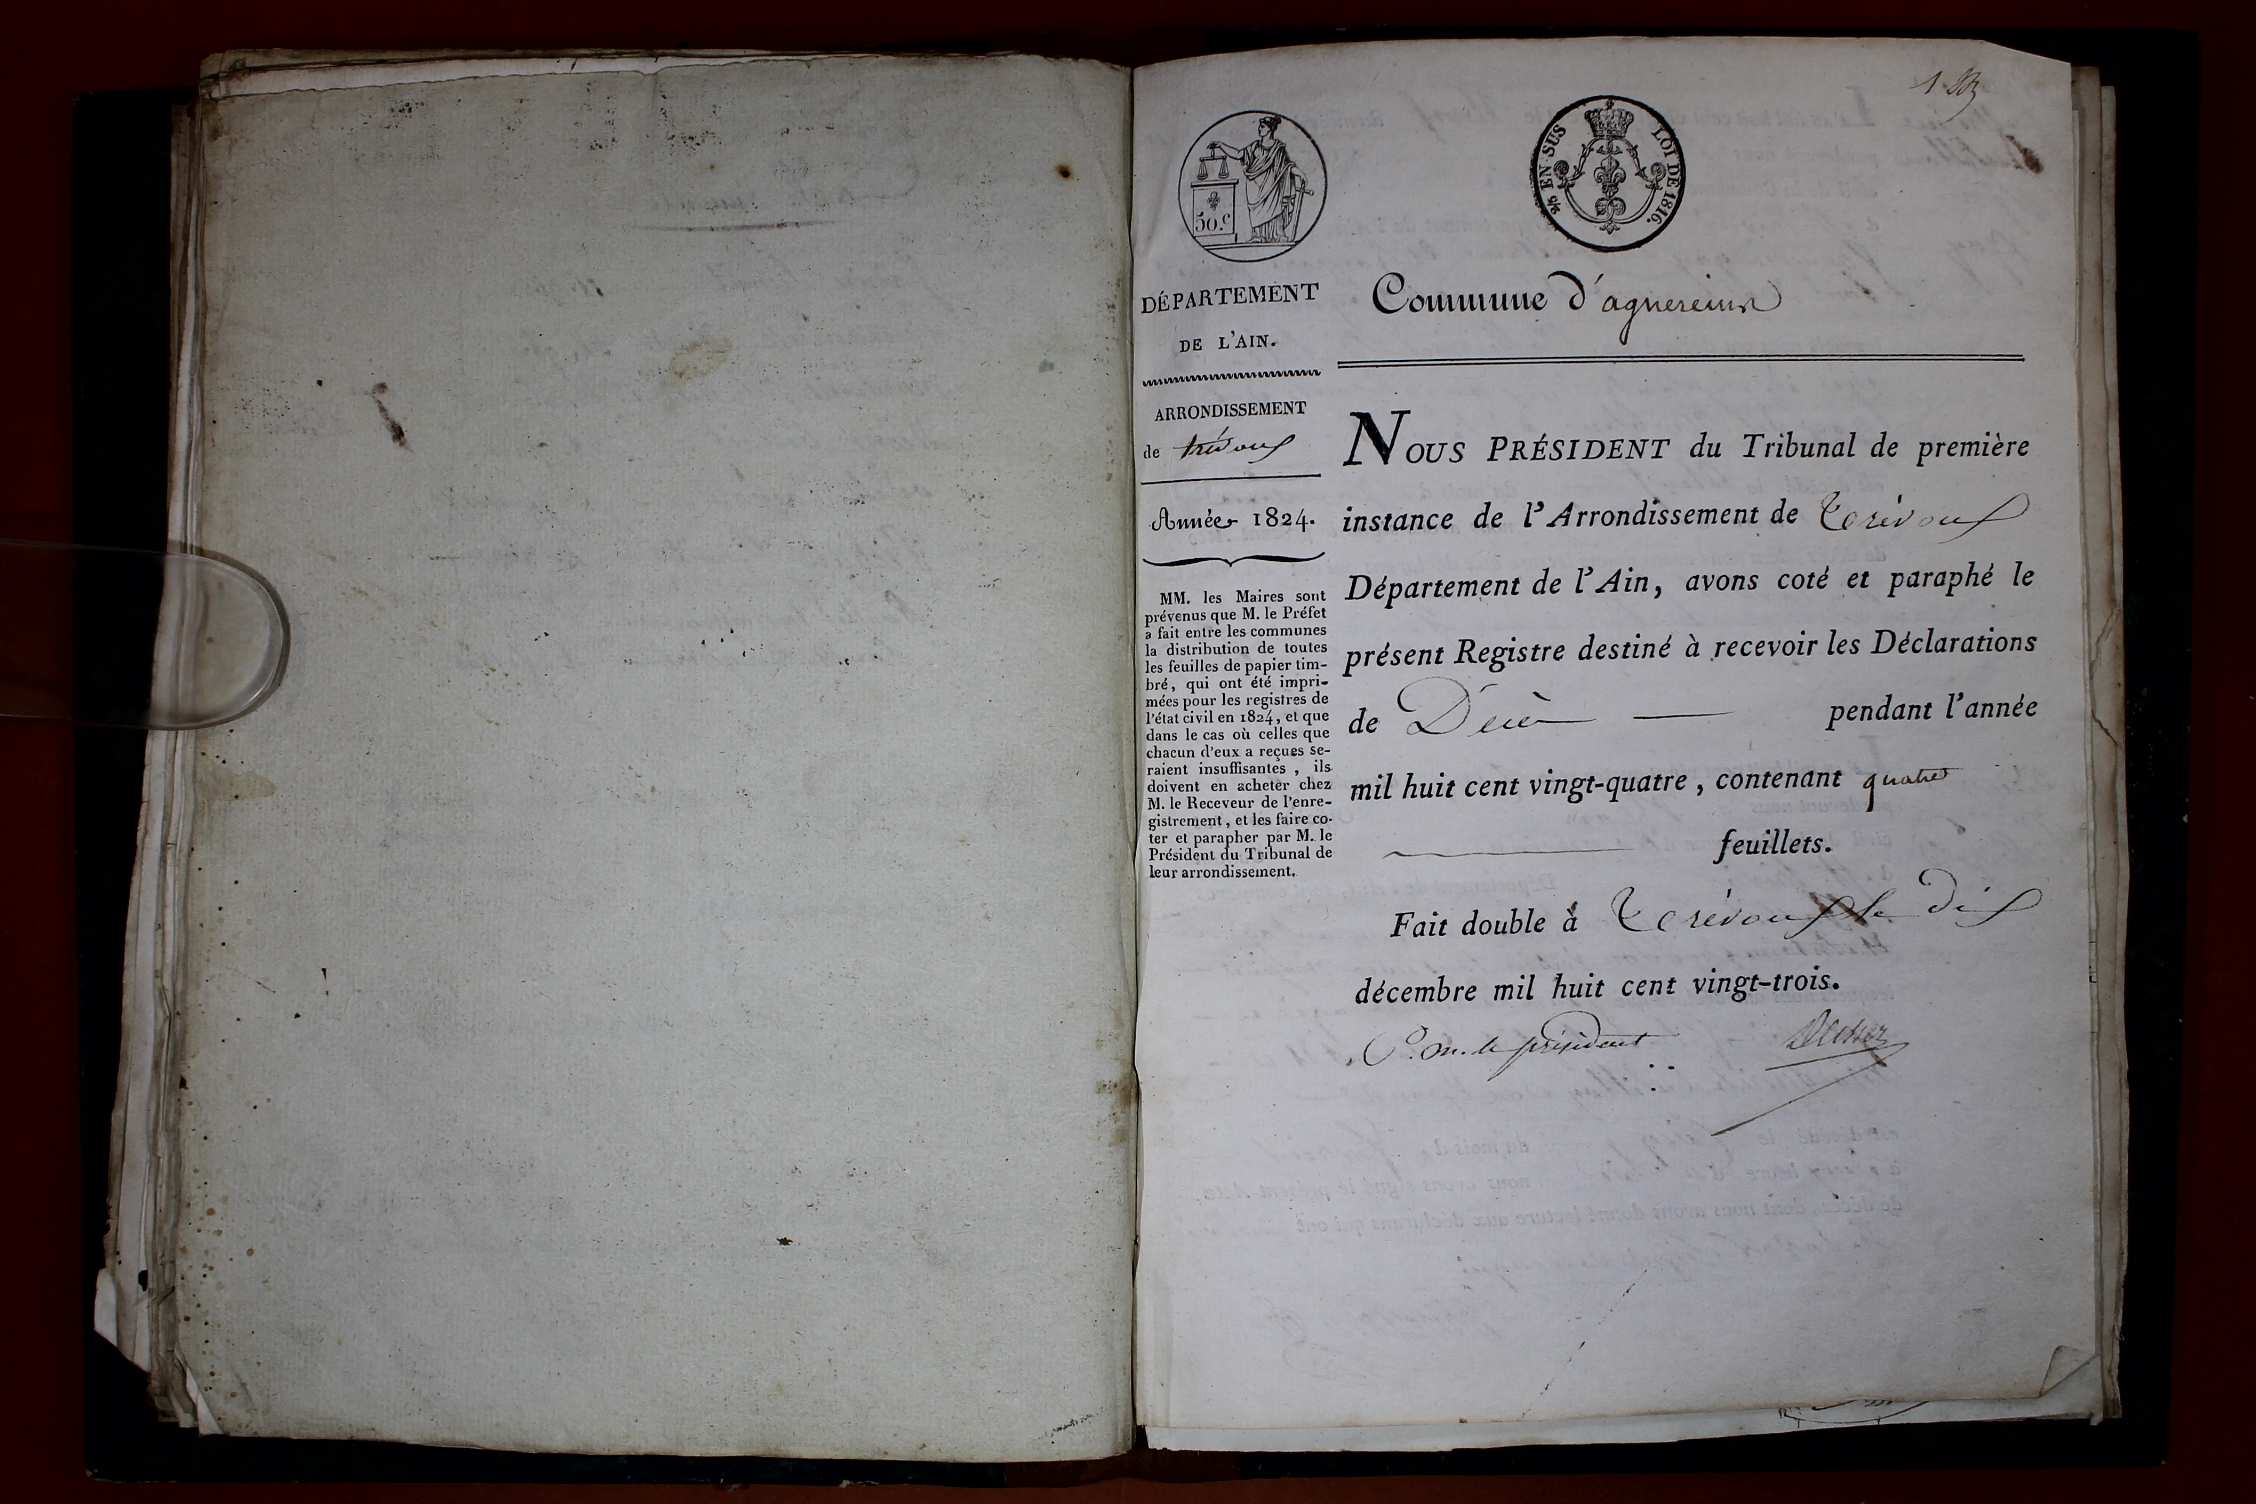 2/5 EN SUS
LOI DE 1816.
50.c
DÉPARTEMENT
DE L'AIN.
ARRONDISSEMENT
de trévoux
Année 1824.
MM. les Maires sont
prévenus que M. le Préfet
a fait entre les communes
la distribution de toutes
les feuilles de papier tim-
bré, qui ont été impri-
mées pour les registres de
l'état civil en 1824, et que
dans le cas où celles que
chacun d'eux a reçues se-
raient insuffisantes, ils
doivent en acheter chez
M. le Receveur de l'enre-
gistrement, et les faire co-
ter et parapher par M. le
Président du Tribunal de
leur arrondissement.
Commune d'agnereins
NOUS PRÉSIDENT du Tribunal de première
instance de l'Arrondissement de Trévoux
Département de l'Ain, avons coté et paraphé le
présent Registre destiné à recevoir les Déclarations
de Décès pendant l'année
mil huit cent vingt-quatre, contenant quatre
feuillets.
Fait double à Trévoux le dix
décembre mil huit cent vingt-trois.
P. M. le président